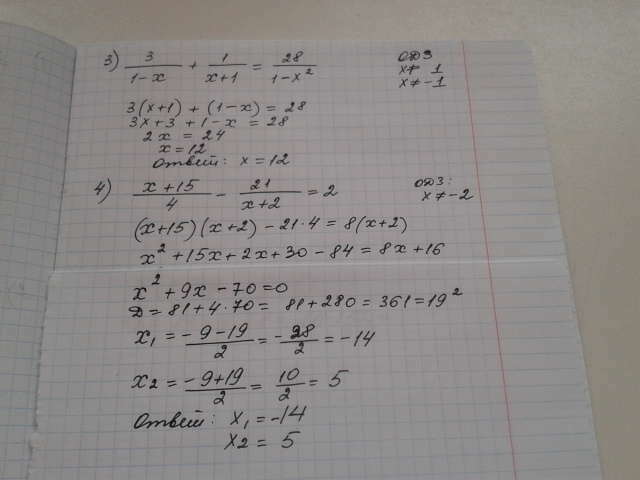 3) 3/(1-x) + 1/(x+1) = 28/(1-x²) ОДЗ
x≠ 1
x≠-1
3(x+1) + (1-x) = 28
3x+3+1-x = 28
2x = 24
x=12
Ответ: x=12
4) (x+15)/4 - 21/(x+2) = 2 ОДЗ:
x≠-2
(x+15)(x+2) - 21·4 = 8(x+2)
x² +15x+2x+30-84=8x+16
x² +9x-70=0
Д=81+4·70= 81+280=361=19²
x₁ = (-9-19)/2 = -28/2 = -14
x₂ = (-9+19)/2 = 10/2 = 5
Ответ: x₁=-14
x₂ = 5